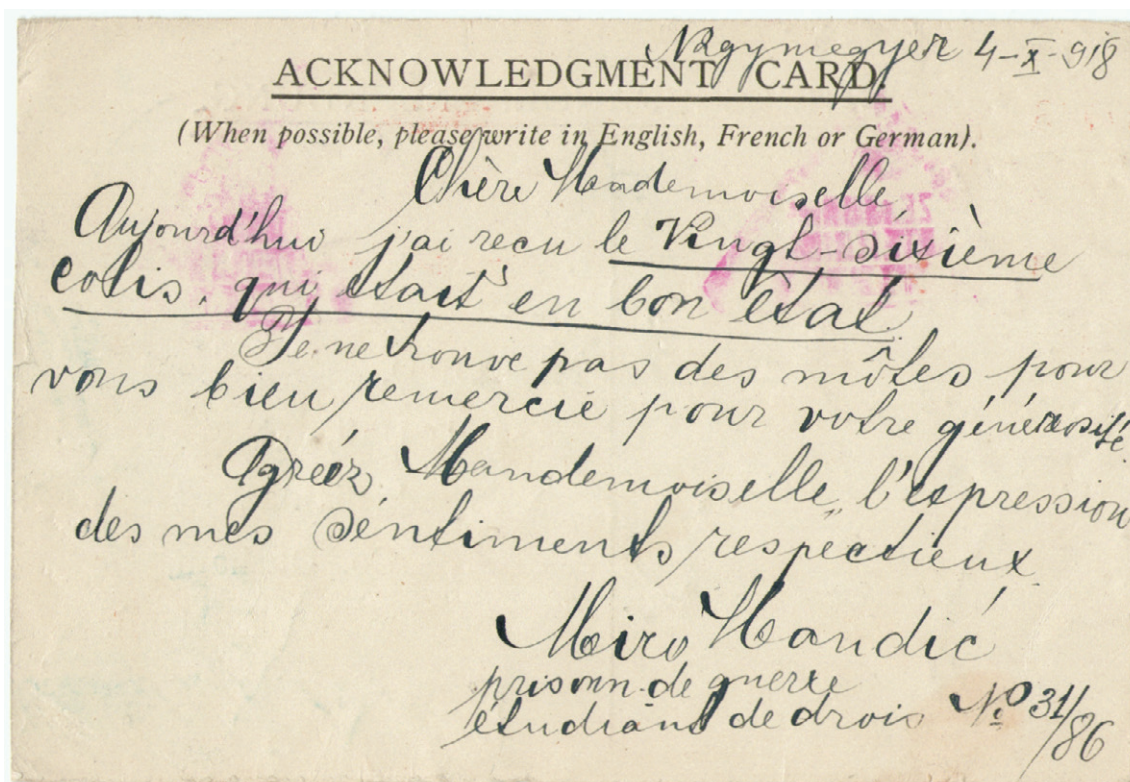 Nagymegyer 4-X-918
ACKNOWLEDGMENT CARD.
(When possible, please write in English, French or German).
Chère Mademoiselle,
Aujourd'hui j'ai recu le Vingt-sixième
colis, qui ètait en bon ètat.
Je ne trouve pas des môtes pour
vous bieu remercie pour votre génerosité.
Agreéz, Mandemoiselle, l'expression
des mes séntiments respectieux.
Miro Mandić
prisonn. de guerre
étudiant de drois No 31/86